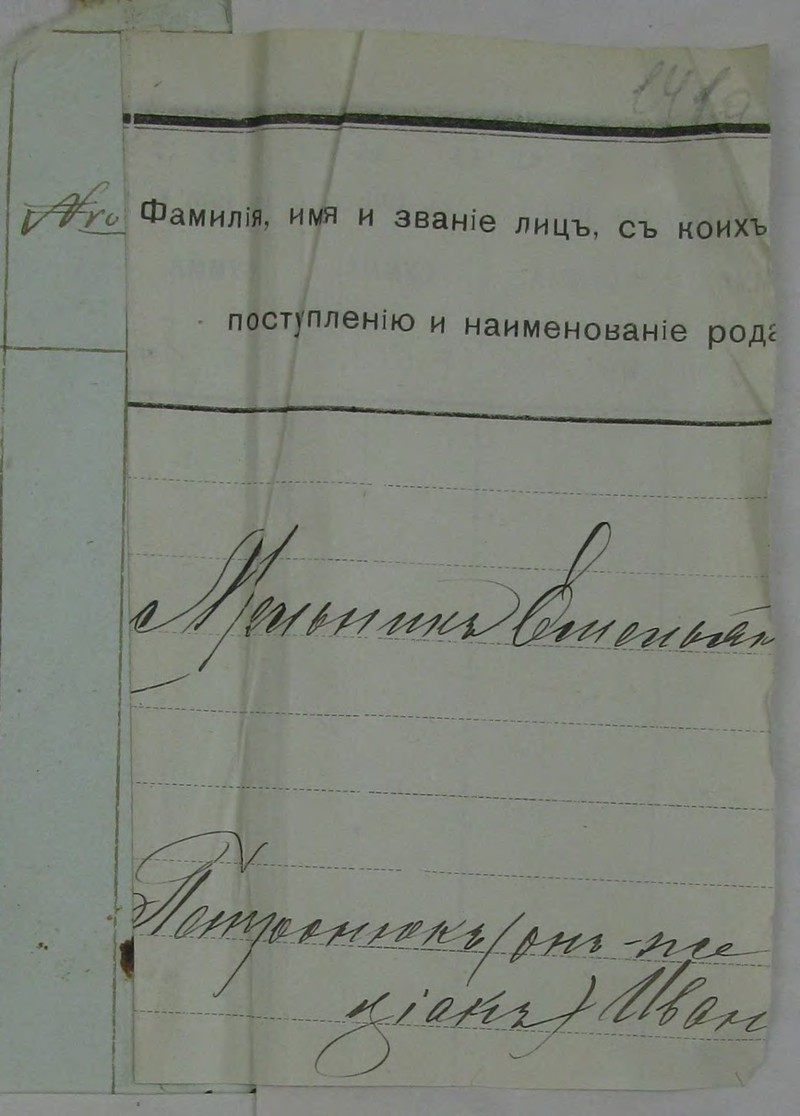 Nro
Фамилія, имя и званіе лицъ, съ коихъ
поступленію и наименованіе рода
Мельникъ Емельян
Петронюкъ (онъ-же
Діакъ) Иван